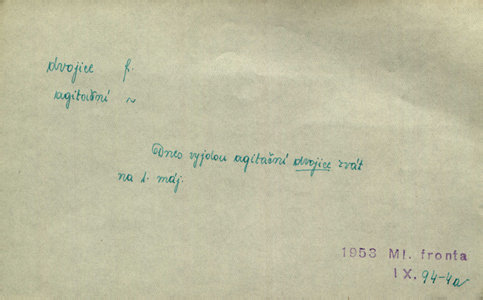 dvojice f.
agitační ~
Dnes vyjdou agitační dvojice zvát
na 1. máj.
1953 Ml. fronta
IX. 94-4a